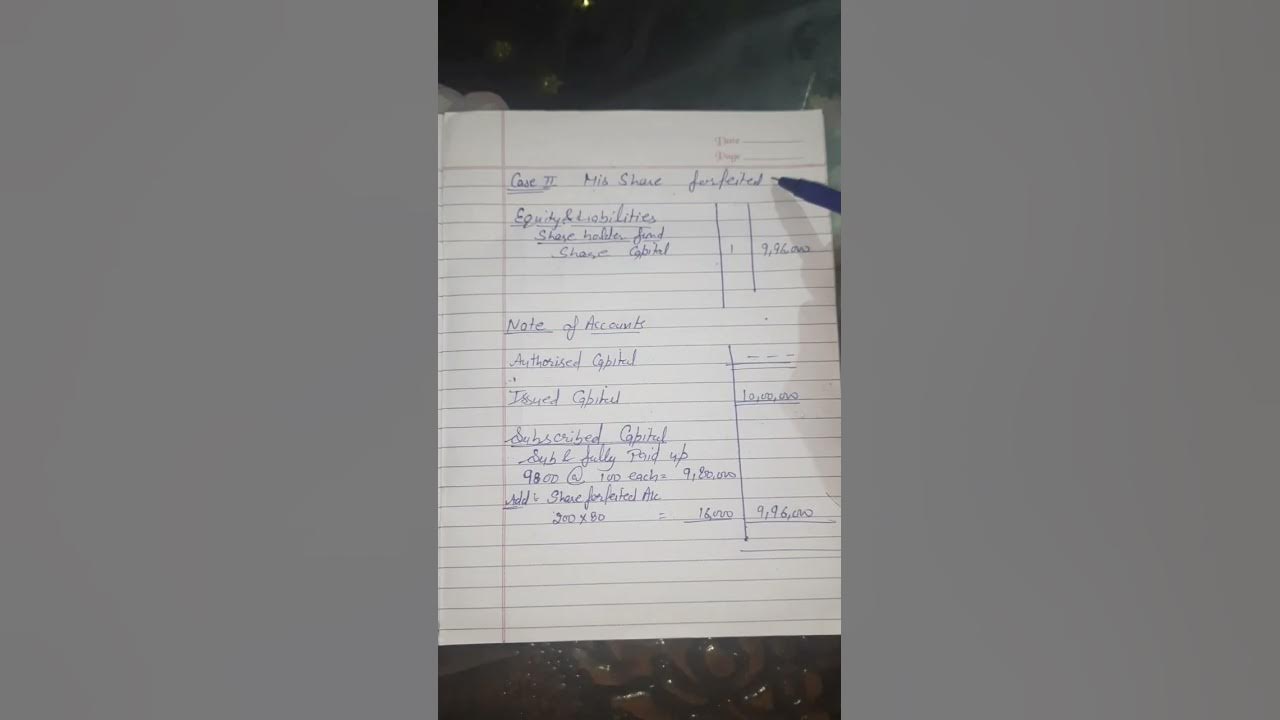 Date
Page
Case II His Share forfeited
Equity & Liabilities
Share holder fund
Share Capital 1 9,96,000
Note of Accounts
Authorised Capital - - -
Issued Capital 10,00,000
Subscribed Capital
Sub & fully Paid up
9800 @ 100 each = 9,80,000
Add: Share forfeited A/c
200 x 80 = 16,000 9,96,000